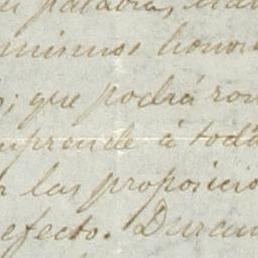 palabra,
mismos honor
; que podrá rom
mprende á toda
las proposicio
efecto. Duran